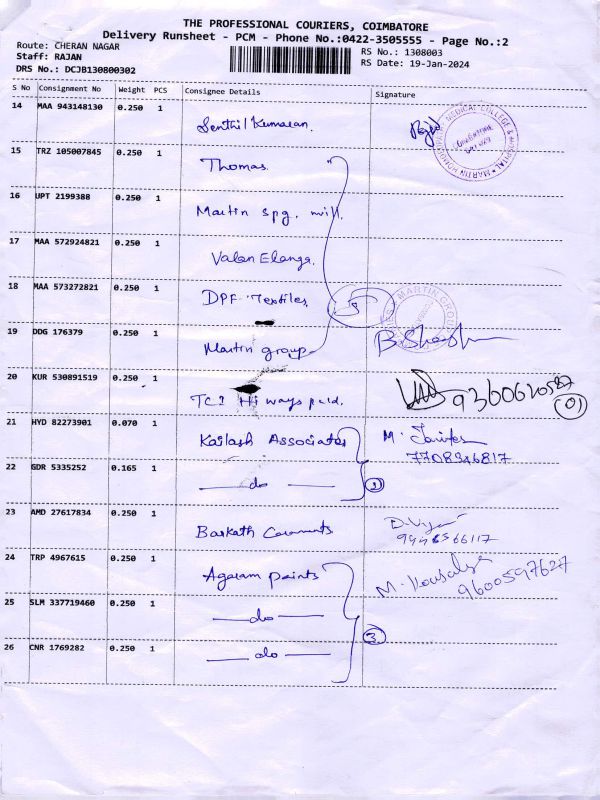 THE PROFESSIONAL COURIERS, COIMBATORE
Delivery Runsheet - PCM - Phone No.:0422-3505555 - Page No.:2
Route: CHERAN NAGAR RS No.: 1308003
Staff: RAJAN RS Date: 19-Jan-2024
DRS No.: DCJB130800302
S No Consignment No Weight PCS Consignee Details Signature
14 MAA 943148130 0.250 1 Senthil Kumaran.
15 TRZ 105007845 0.250 1 Thomas.
16 UPT 2199388 0.250 1 Martin spg. mill.
17 MAA 572924821 0.250 1 Valan Elanga.
18 MAA 573272821 0.250 1 DPF Textiles 5
19 DDG 176379 0.250 1 Martin group
20 KUR 530891519 0.250 1 TCI Hi ways pvtd.
21 HYD 82273901 0.070 1 Kailash Associates
7708346817
22 GDR 5335252 0.165 1 — do —
23 AMD 27617834 0.250 1 Barkath
24 TRP 4967615 0.250 1 Agaram paints M. Kousalya
9600597627
25 SLM 337719460 0.250 1 — do —
26 CNR 1769282 0.250 1 — do — 3